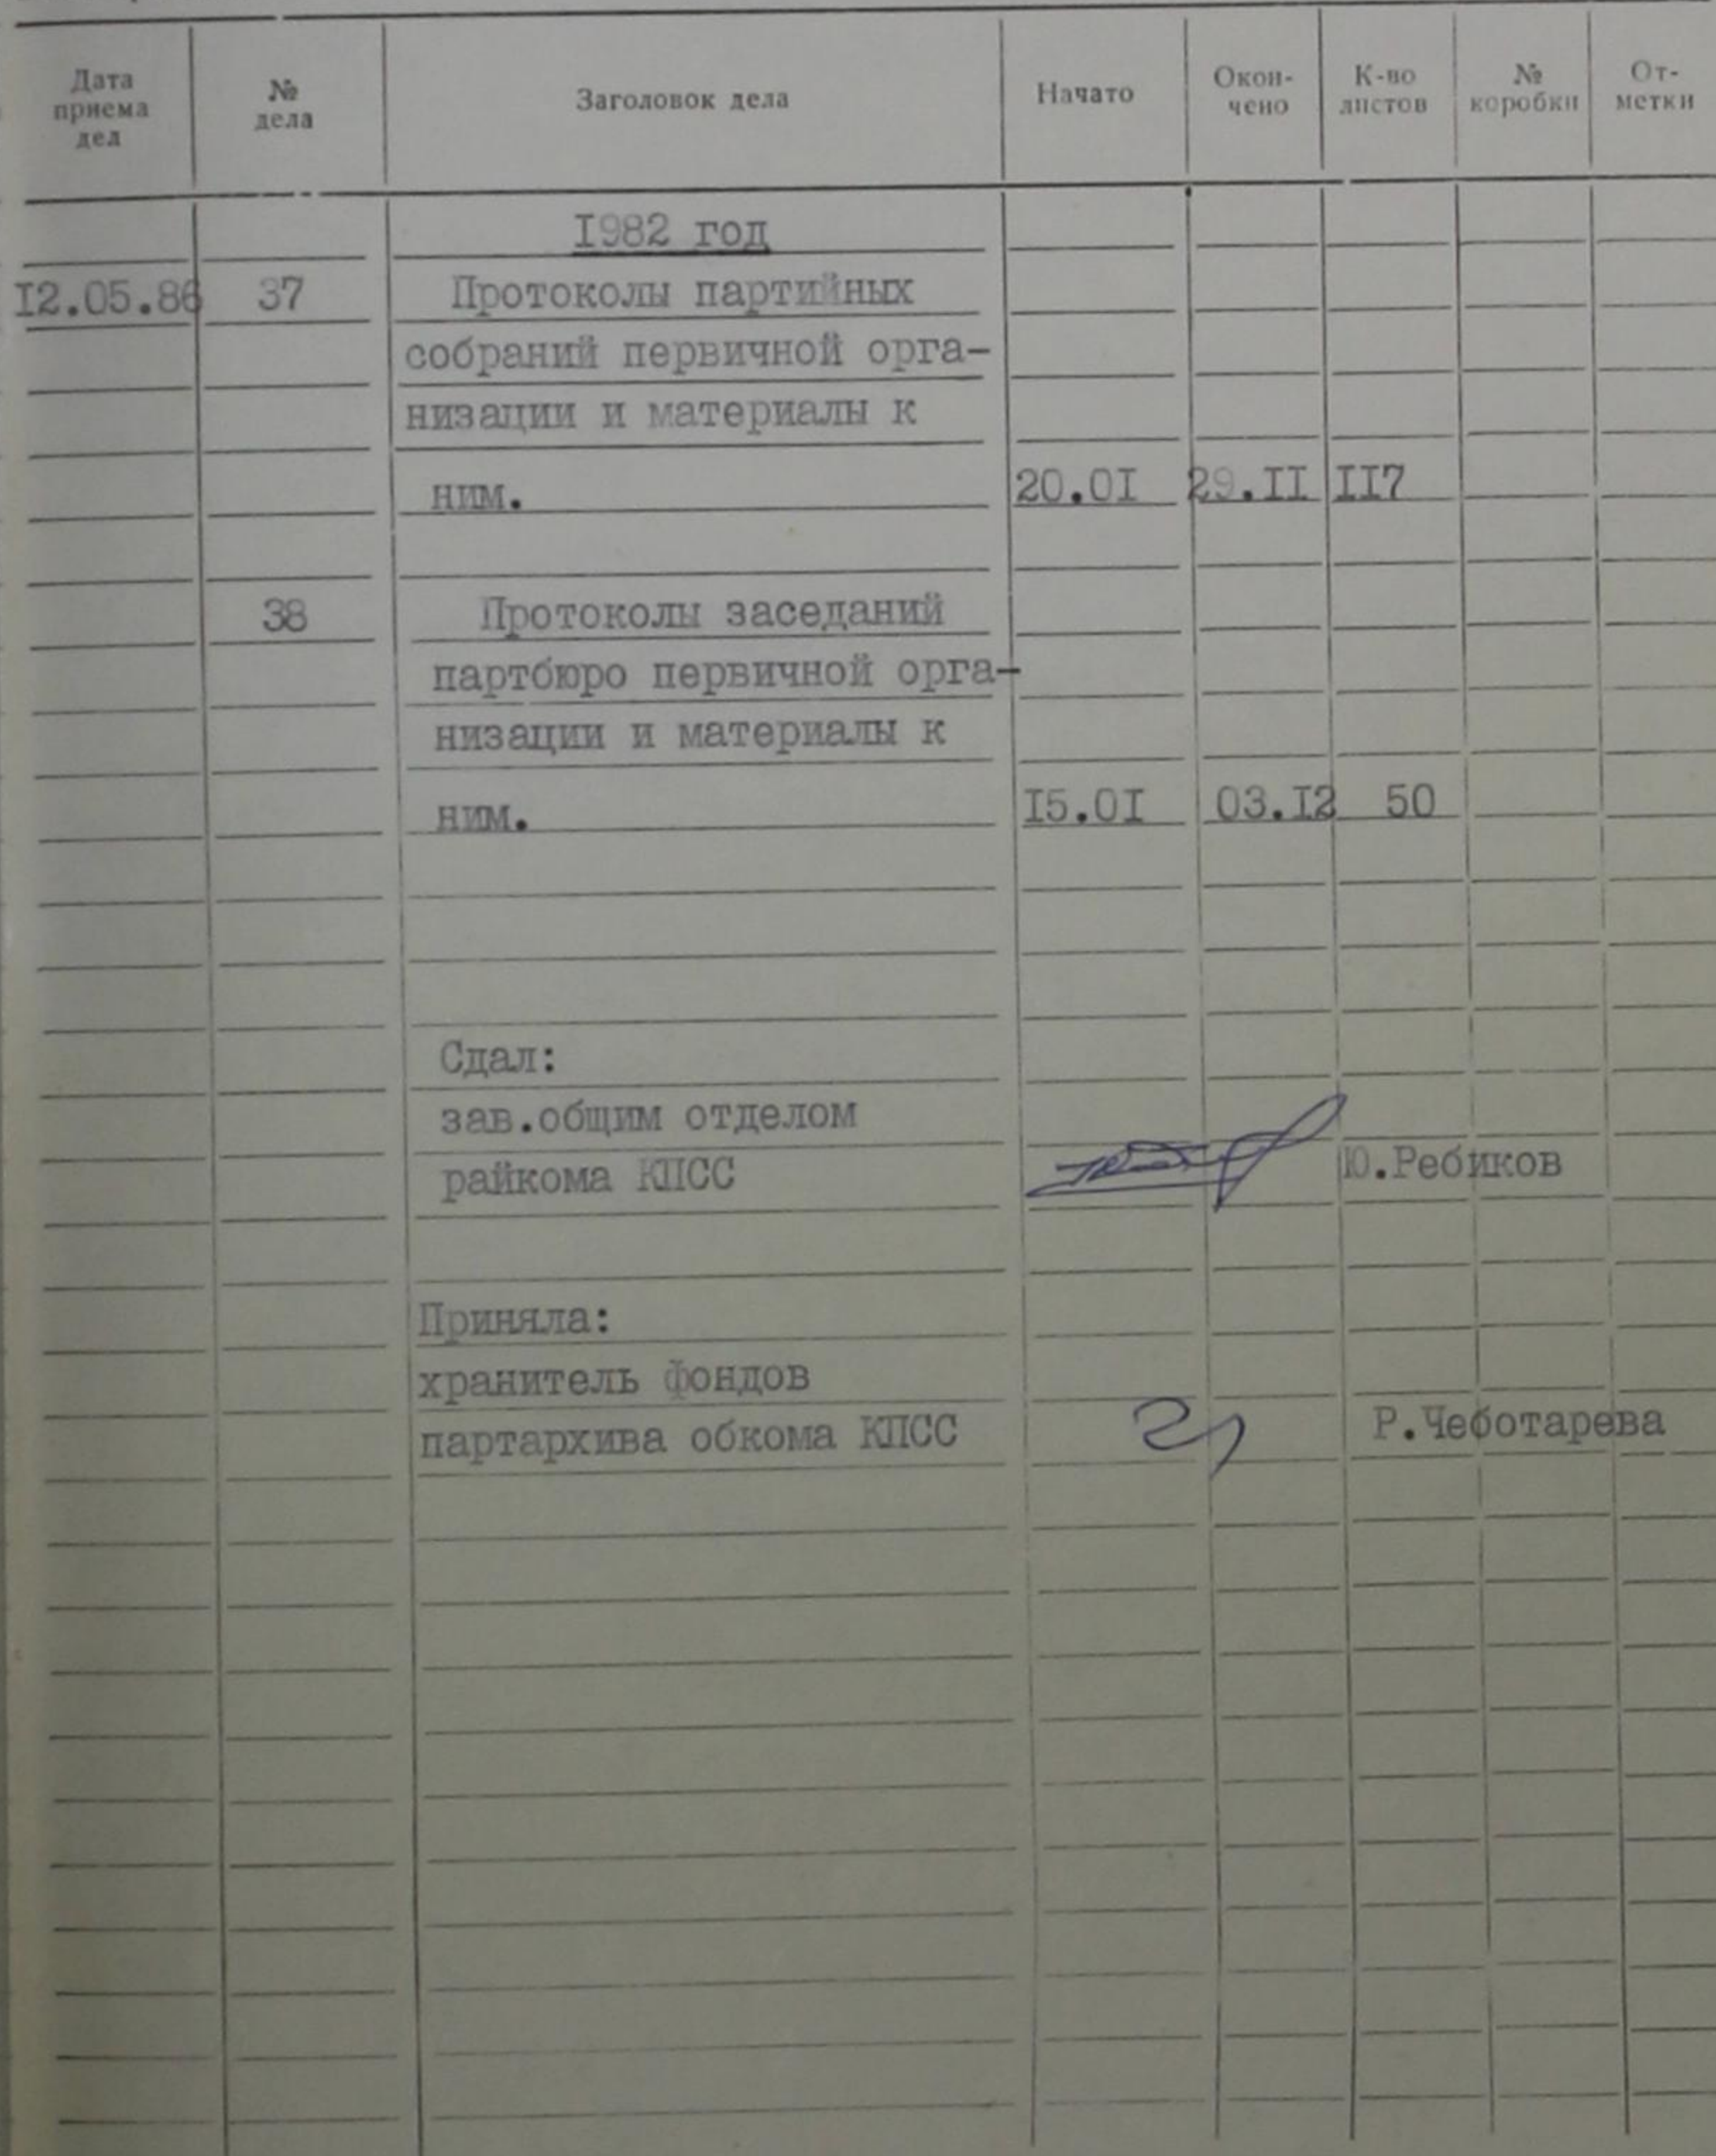 Дата приема дел № дела Заголовок дела Начато Окон-чено К-во листов № коробки От-метки
I982 год
I2.05.86 37 Протоколы партийных
собраний первичной орга-
низации и материалы к
ним. 20.0I 29.II II7
38 Протоколы заседаний
партбюро первичной орга-
низации и материалы к
ним. I5.0I 03.I2 50
Сдал:
зав.общим отделом
райкома КПСС Ю.Ребиков
Приняла:
хранитель фондов
партархива обкома КПСС Р.Чеботарева